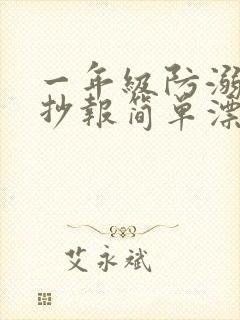 一年级防溺
抄报简单漂
艾永斌